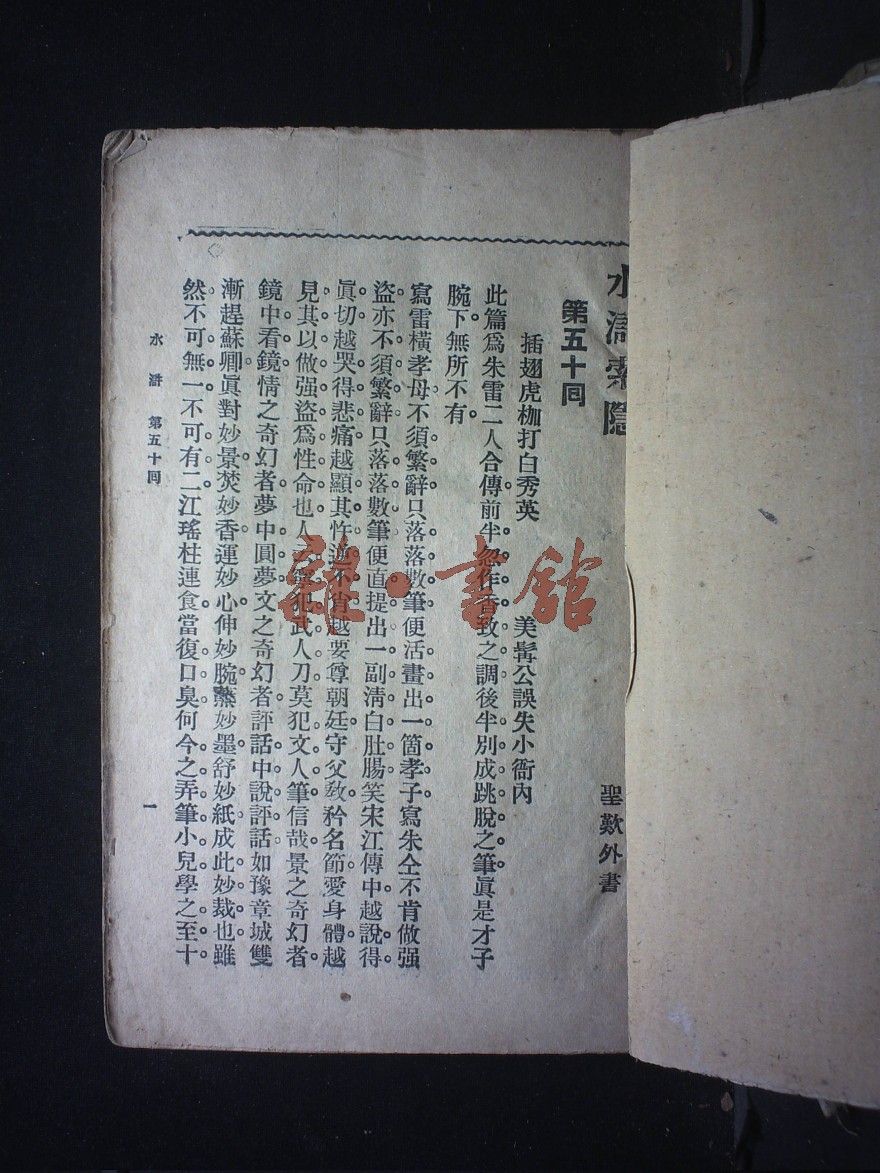 水滸索隱
聖歎外書
第五十回
插翅虎枷打白秀英　美髯公誤失小衙內
此篇爲朱雷二人合傳前半忽作香致之調後半別成跳脫之筆眞是才子
腕下無所不有
寫雷橫孝母不須繁辭只落落數筆便活畫出一箇孝子寫朱仝不肯做强
盜亦不須繁辭只落落數筆便直提出一副淸白肚腸笑宋江傳中越說得
眞切越哭得悲痛越顯其忤逆不肖越要尊朝廷守父敎矜名節愛身體越
見其以做强盜爲性命也人云寧犯武人刀莫犯文人筆信哉景之奇幻者
鏡中看鏡情之奇幻者夢中圓夢文之奇幻者評話中說評話如豫章城雙
漸趕蘇卿眞對妙景焚妙香運妙心伸妙腕蘸妙墨舒妙紙成此妙裁也雖
然不可無一不可有二江瑤柱連食當復口臭何今之弄筆小兒學之至十
水滸　第五十回　一
雜·書館